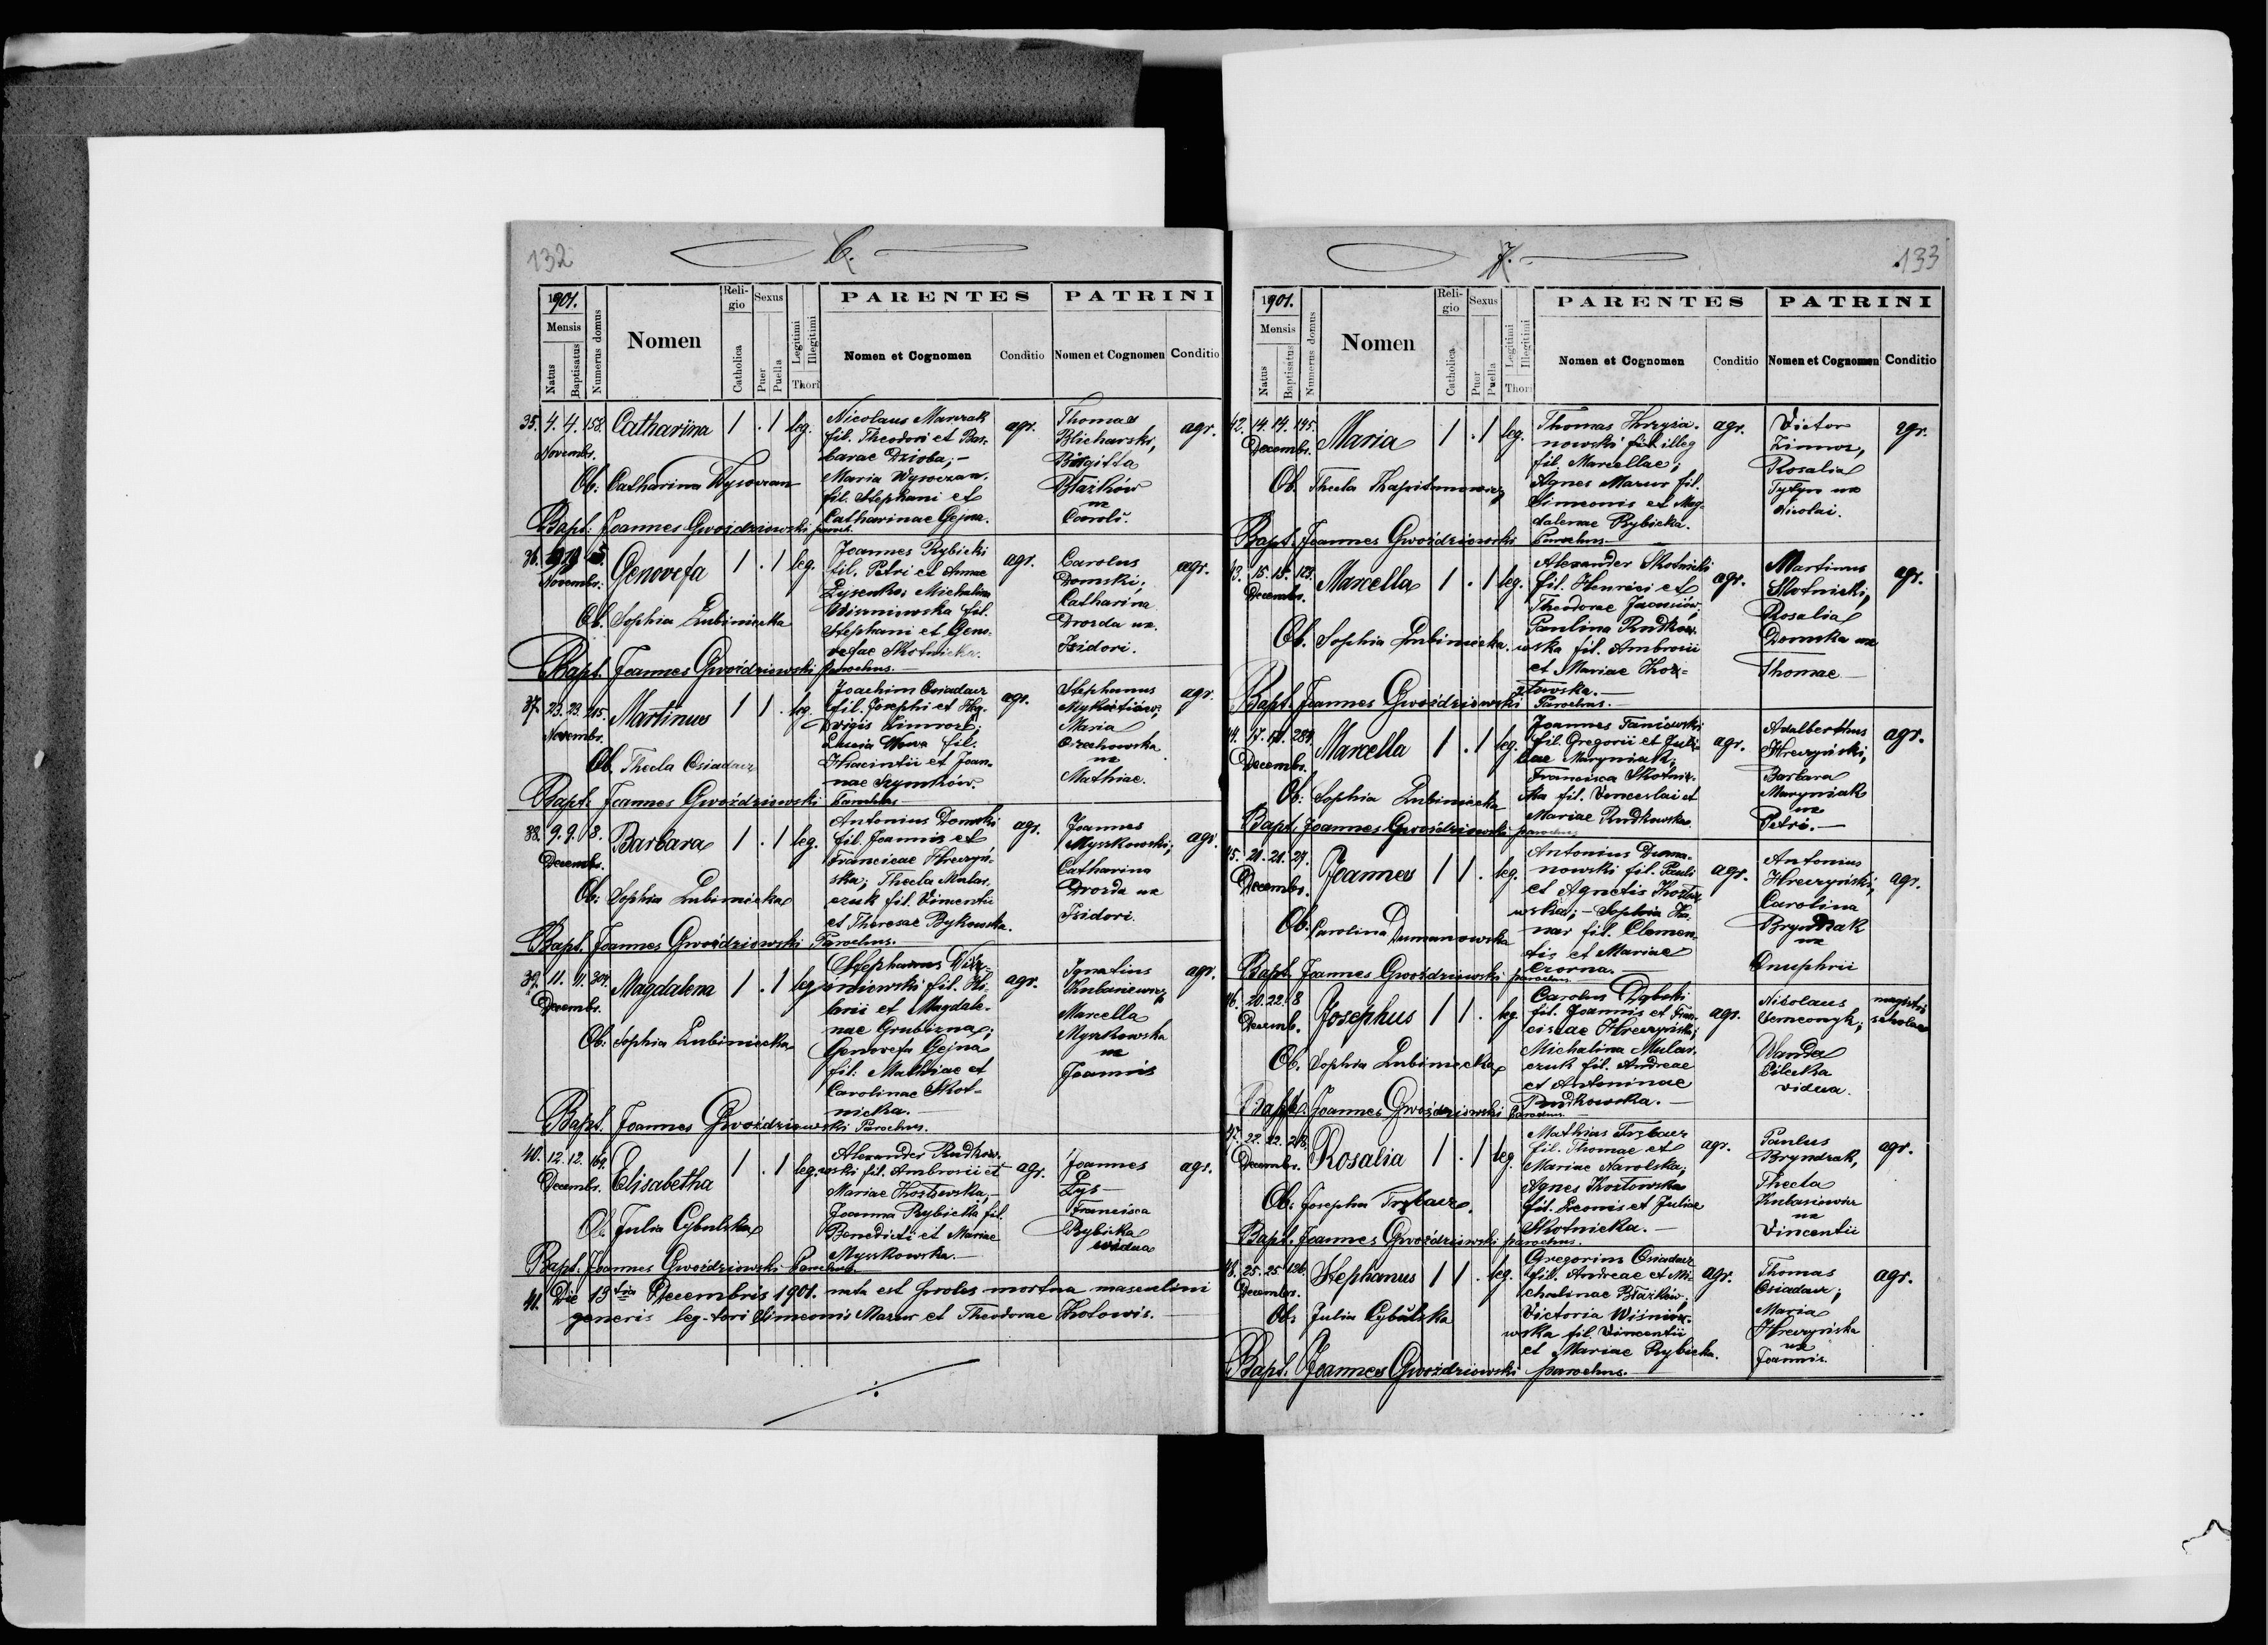 132
6.
1901.
Mensis
Natus
Baptisatus
Numerus domus
Nomen
Religio
Catholica
Sexus
Puer
Puella
Legitimi
Illegitimi
Thori
PARENTES
Nomen et Cognomen
Conditio
PATRINI
Nomen et Cognomen
Conditio
35. 4. 4. 158. Catharina 1 . 1 leg.
Novembr.
Nicolaus Marczak
fil. Theodori et Bar-
barae Dzioba; -
Maria Wysoczan.
fil. Stephani et
Catharinae Gejna.
agr.
Thomas
Blicharski,
Brigitta
Błażków
ux
Caroli.
agr.
Ob: Catharina Wysoczan
Bapt: Joannes Gwoździowski paroch.
36. Genovefa 1 . 1 leg.
Novembr.
Joannes Rybicki
fil. Petri et Annae
Łysenko; Michalina
Wiszniowska fil.
Stephani et Geno-
vefae Skotnicka.
agr.
Carolus
Domski;
Catharina
Drozda ux.
Isidori.
agr.
Ob. Sophia Lubiniecka
Bapt. Joannes Gwoździowski parochus.
37. 23. 23. 215. Martinus 1 1 . leg.
Novembr.
Joachim Osiadacz
fil. Josephi et Hed-
vigis
Lucia
fil.
Hiacintii et Joan-
nae Szymków.
agr.
Stephanus
Mykietiów;
Maria
Orzechowska
ux
Mathiae.
agr.
Ob. Thecla Osiadacz
Bapt. Joannes Gwoździowski Parochus
38. 9. 9. 8. Barbara 1 . 1 leg.
Decembr.
Antonius Domski
fil. Joannis et
Franciscae Hreczyń-
ska; Thecla Mular-
czuk fil. Vincentii
et Theresae Bykowska.
agr.
Joannes
Myszkowski;
Catharina
Drozda ux
Isidori.
agr.
Ob: Sophia Lubiniecka
Bapt. Joannes Gwoździowski Parochus.
39. 11. 11. 304. Magdalena 1 . 1 leg.
Decembr.
Stephanus Wisz-
niowski fil. Hi-
larii et Magdale-
nae Grubizna;
Genovefa Gejna
fil: Mathiae et
Carolinae Skot-
nicka.
agr.
Ignatius
Kubasiewicz
Marcella
Myszkowska
ux
Joannis
agr.
Ob: Sophia Lubiniecka
Bapt. Joannes Gwoździowski Parochus.
40. 12. 12. 169. Elisabetha 1 . 1 leg.
Decembr.
Alexander Rudkow-
wski fil. Ambrosii et
Mariae Kozłowska, -
Joanna Rybicka fil.
Benedicti et Mariae
Myszkowska. -
agr.
Joannes
Łys
Francisca
Rybicka
vidua
agr.
Ob. Julia Cybulska
Bapt. Joannes Gwoździowski Parochus.
41. Die 13tia Decembris 1901. nata est proles mortua masculini
generis leg. tori Simeonis Mazur et Theodorae Kotowis.
7.
133
1901.
Mensis
Natus
Baptisatus
Numerus domus
Nomen
Religio
Catholica
Sexus
Puer
Puella
Legitimi
Illegitimi
Thori
PARENTES
Nomen et Cognomen
Conditio
PATRINI
Nomen et Cognomen
Conditio
42. 14. 14. 145. Maria 1 . 1 leg.
Decembr.
Thomas Krzyża-
nowski fil. illeg
fil. Marcellae;
Agnes Mazur fil.
Simeonis et Mag-
dalenae Rybicka.
agr.
Victor
Rosalia
Tytyn ux
Nicolai.
agr.
Ob. Thecla
Bapt. Joannes Gwoździowski Parochus
43. 15. 15. 123. Marcella 1 . 1 leg.
Decembr.
Alexander Skotnicki
fil. Henrici et
Theodorae
Paulina Rudkow-
wska fil. Ambrosii
et Mariae Koz-
łowska. -
agr.
Martinus
Skotnicki,
Rosalia
Domska ux
Thomae
agr.
Ob. Sophia Lubiniecka.
Bapt. Joannes Gwoździowski Parochus.
44. 17. 17. 284. Marcella 1 . 1 leg.
Decembr.
Joannes Faniowski
fil. Gregorii et Juli-
ae Maryniak;
Francisca Skotnic-
ka fil. Venceslai et
Mariae Rudkowska.
agr.
Adalberthus
Hreczyński,
Barbara
Maryniak
ux
Petri. -
agr.
Ob: Sophia Lubiniecka
Bapt. Joannes Gwoździowski parochus
45. 21. 21. 27. Joannes 1 1 . leg.
Decembr.
Antonius Duma-
nowski fil. Pauli
et Agnetis Kozło-
wska; - Sophia
fil. Clemen-
tis et Mariae
Czorna.
agr.
Antonius
Hreczyński,
Carolina
Bryndzak
ux
Onuphrii
agr.
Ob. Carolina Dumanowska
Bapt. Joannes Gwoździowski parochus.
46. 20. 22. 8 Josephus 1 1 . leg.
Decemb.
Carolus Dębski
fil. Joannis et Fran-
ciscae Hreczyńska;
Michalina Mular-
czuk fil. Andreae
et Antoninae
Rudkowska. -
agr.
Nicolaus
Semconyk;
Wanda
Pilecka
vidua.
magistri
scholae
Ob. Sophia Lubiniecka
Bapt. Joannes Gwoździowski Parochus.
47. 22. 22. 218. Rosalia 1 . 1 leg.
Decembr.
Mathias Trębacz
fil. Thomae et
Mariae Narolska;
Agnes Kozłowska
fil. Leonis et Juliae
Skotnicka. -
agr.
Paulus
Bryndzak,
Thecla
Kubasiewicz
ux
Vincentii
agr.
Ob: Josepha Trębacz.
Bapt. Joannes Gwoździowski parochus.
48. 25. 25. 126. Stephanus 1 1 . leg.
Decembr.
Gregorius Osiadacz
fil. Andreae et Mi-
chalinae Błażków;
Victoria Wiśnio-
wska fil. Vincentii
et Mariae Rybicka.
agr.
Thomas
Osiadacz;
Maria
Hreczyńska
ux
Joannis.
agr.
Ob: Julia Cybulska
Bapt. Joannes Gwoździowski parochus.